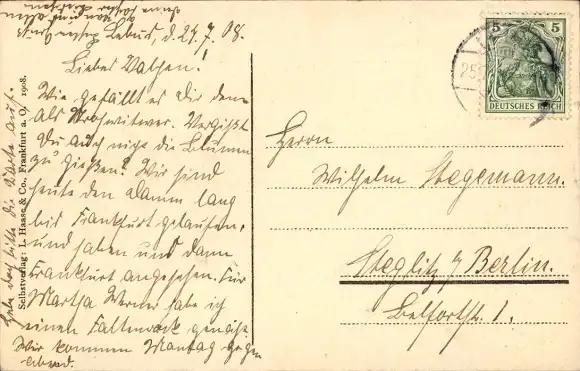 Lebus, d. 24.7.08.
Liebes Vatchen!
Wie gefällt es dir denn
als Strohwitwer. Vergißt
Du auch nicht die Blumen
zu gießen? Wir sind
heute den Damm lang
bis Frankfurt gelaufen,
und haben uns dann
Frankfurt angesehen. Für
Martha habe ich
einen Faltenrock genäht.
Wir kommen Montag gegen
Abend.
Hebe doch bitte die Karte auf.
Selbstverlag: L. Haase & Co., Frankfurt a. O. 1908.
5 5
DEUTSCHES REICH
Herrn
Wilhelm Stegemann.
Steglitz b/ Berlin.
Belfortstr. 1.